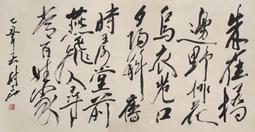 朱雀橋
邊野草花
烏衣巷口
夕陽斜舊
時王謝堂前
燕飛入尋
常百姓家